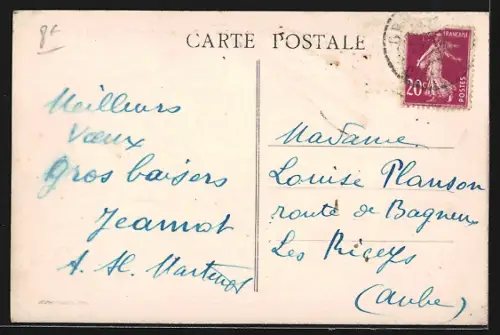 8f
CARTE POSTALE
FRANÇAISE
20c
POSTES
Meilleurs
Vœux
Gros baisers
Jeannot
A. M. Martenot
Madame
Louise Planson
route de Bagneux
Les Riceys
(Aube)